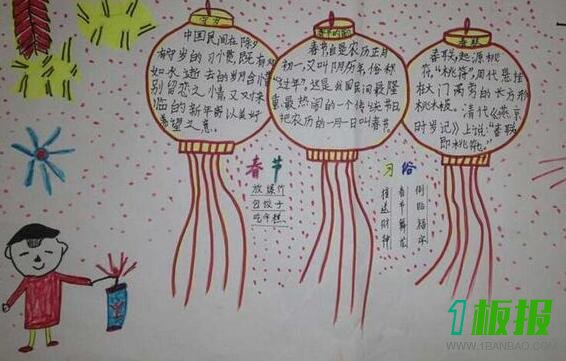 守岁
中国民间在除夕
有守岁的习惯,既有对
如水逝去的岁月含惜
别留恋之情又对来
临的新年寄以美好
希望之意。
春节的
春节也是农历正月
初一,又叫阴历年,俗称
“过年”。这是我国民间最隆
重、最热闹的一个传统节日
把农历的一月一日叫春节。
春联
春联,起源桃
符,“桃符”,周代悬挂
在大门两旁的长方形
桃木板。清代《燕京
时岁记》上说:“春联
即桃符。”
春节
放爆竹
包饺子
吃年糕
习俗
倒贴福字
春节舞龙
接送财神
1板报
WWW.1BANBAO.COM